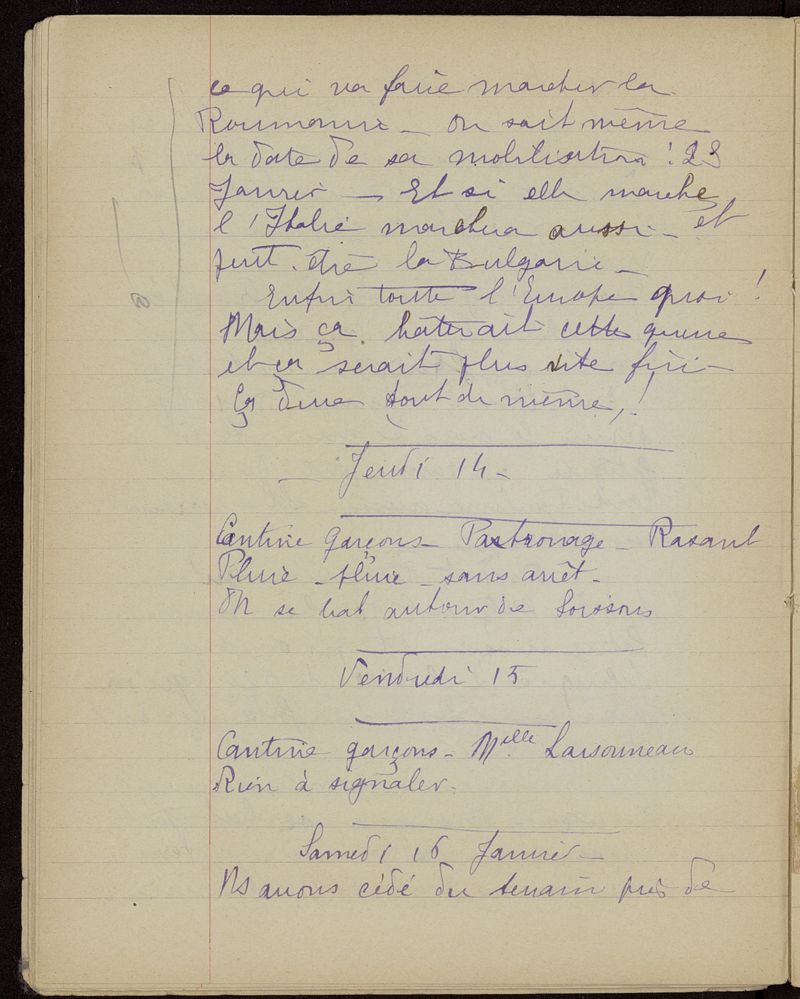 ce qui va faire marcher la
Roumanie - On sait même
la date de sa mobilisation ! 23
Janvier - Et si elle marche
l'Italie marchera aussi - et
peut-être la Bulgarie -
Enfin toute l'Europe quoi !
Mais ça hâterait cette guerre
et ça serait plus vite fini -
Ça dure tout de même !
- Jeudi 14 -
Cantine garçons - Patronage - Rasant
Pluie - pluie - sans arrêt -
On se bat autour de Soissons
Vendredi 15
Cantine garçons - Melle Larsonneau
Rien à signaler.
Samedi 16 Janvier -
Ns avons cédé du terrain près de